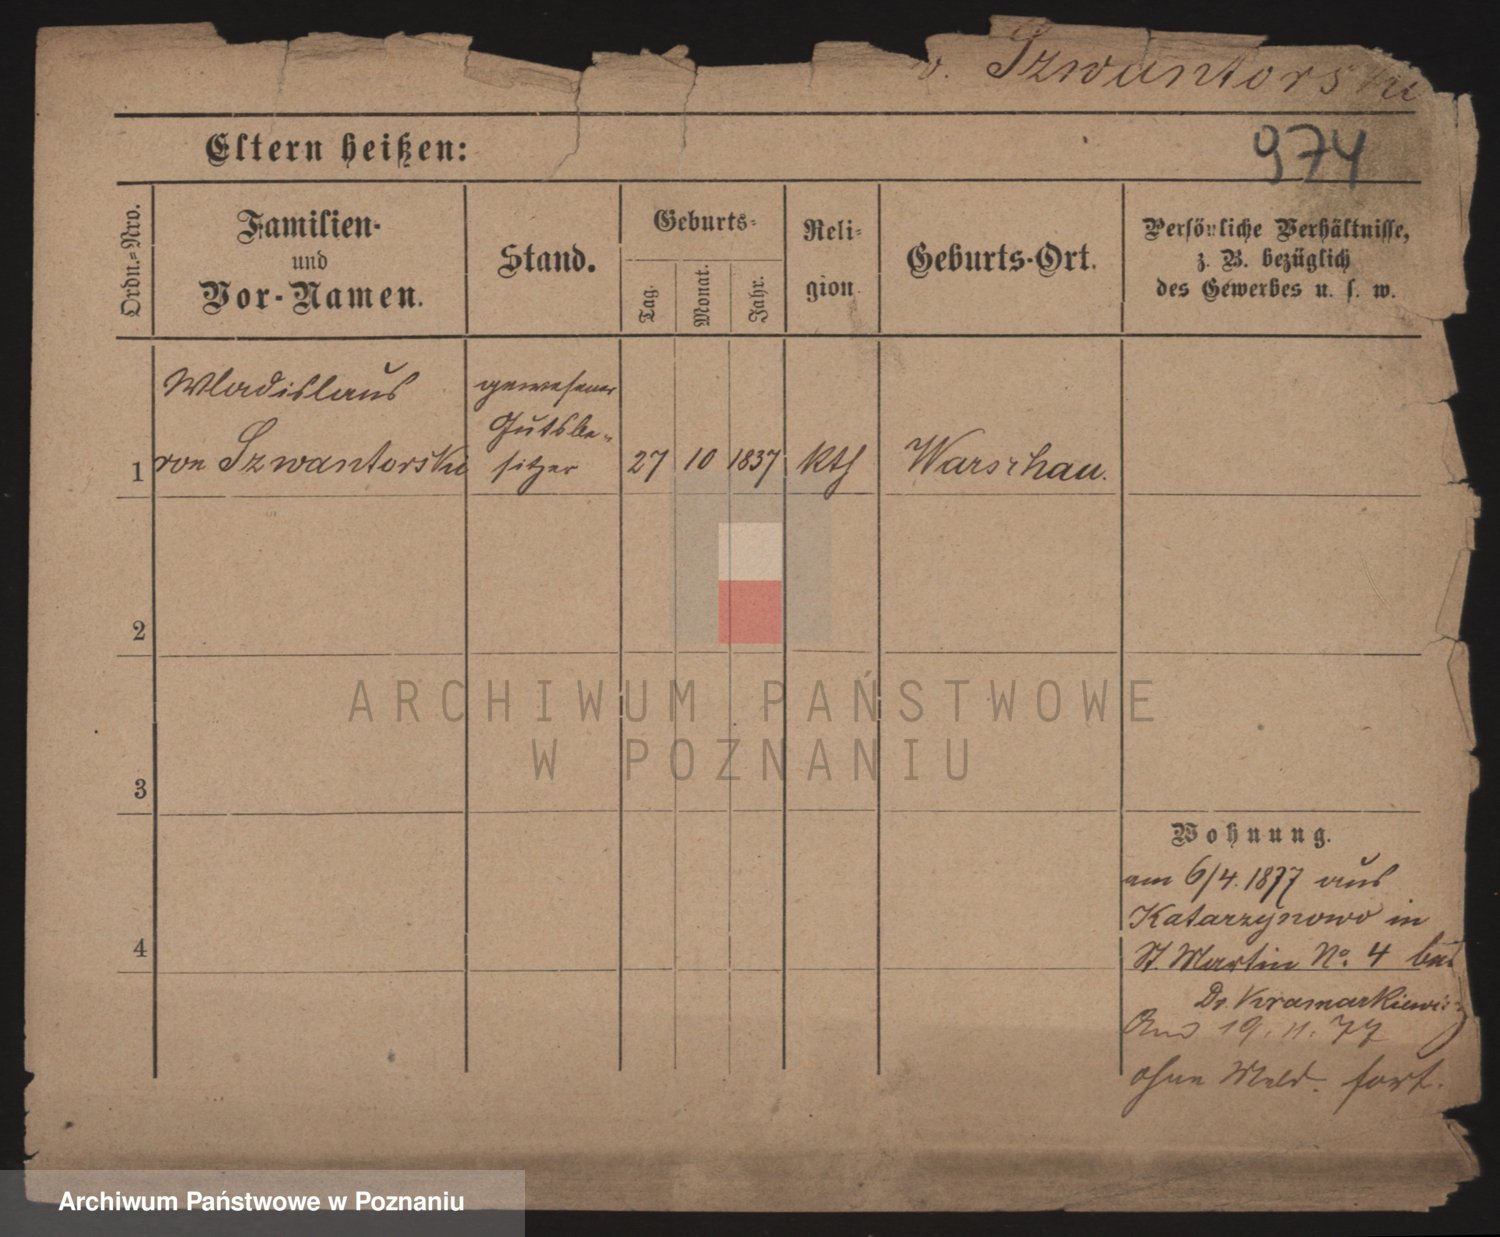 v. Szwantorski
974
Eltern heißen:
Ordn.=Nro.
Familien-
und
Vor-Namen.
Stand.
Geburts-
Tag.
Monat.
Jahr.
Reli-
gion
Geburts-Ort.
Persönliche Verhältnisse,
z. B. bezüglich
des Gewerbes u. s. w.
Wladislaus
gewesener
Gutsbe-
1 von Szwantorski sitzer 27 10 1837 kth Warschau.
2
3
4
Wohnung.
am 6/4. 1877 aus
Katarzynowo in
St. Martin No. 4 bei
Dr. Kramarkiewicz
19. 11. 77
ohne Meld. fort.
ARCHIWUM PAŃSTWOWE
W POZNANIU
Archiwum Państwowe w Poznaniu